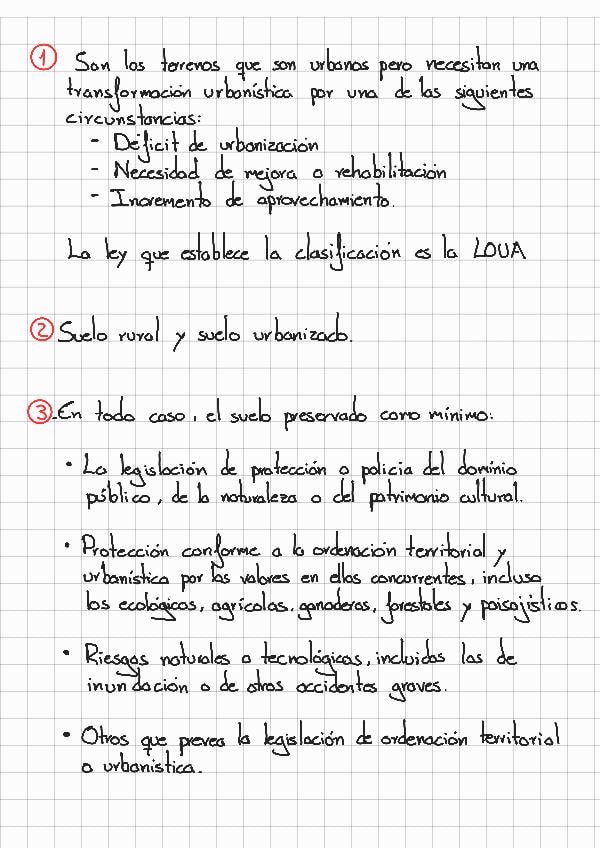 ① Son los terrenos que son urbanos pero necesitan una
transformación urbanística por una de las siguientes
circunstancias:
- Déficit de urbanización
- Necesidad de mejora o rehabilitación
- Incremento de aprovechamiento.
La ley que establece la clasificación es la LOUA
② Suelo rural y suelo urbanizado.
③.En todo caso, el suelo preservado como mínimo:
• La legislación de protección o policia del dominio
público, de la naturaleza o del patrimonio cultural.
• Protección conforme a la ordenación territorial y
urbanística por los valores en ellos concurrentes, incluso
los ecológicos, agrícolas, ganaderos, forestales y paisajísticos.
• Riesgos naturales o tecnológicos, incluidos los de
inundación o de otros accidentes graves.
• Otros que prevea la legislación de ordenación territorial
o urbanística.